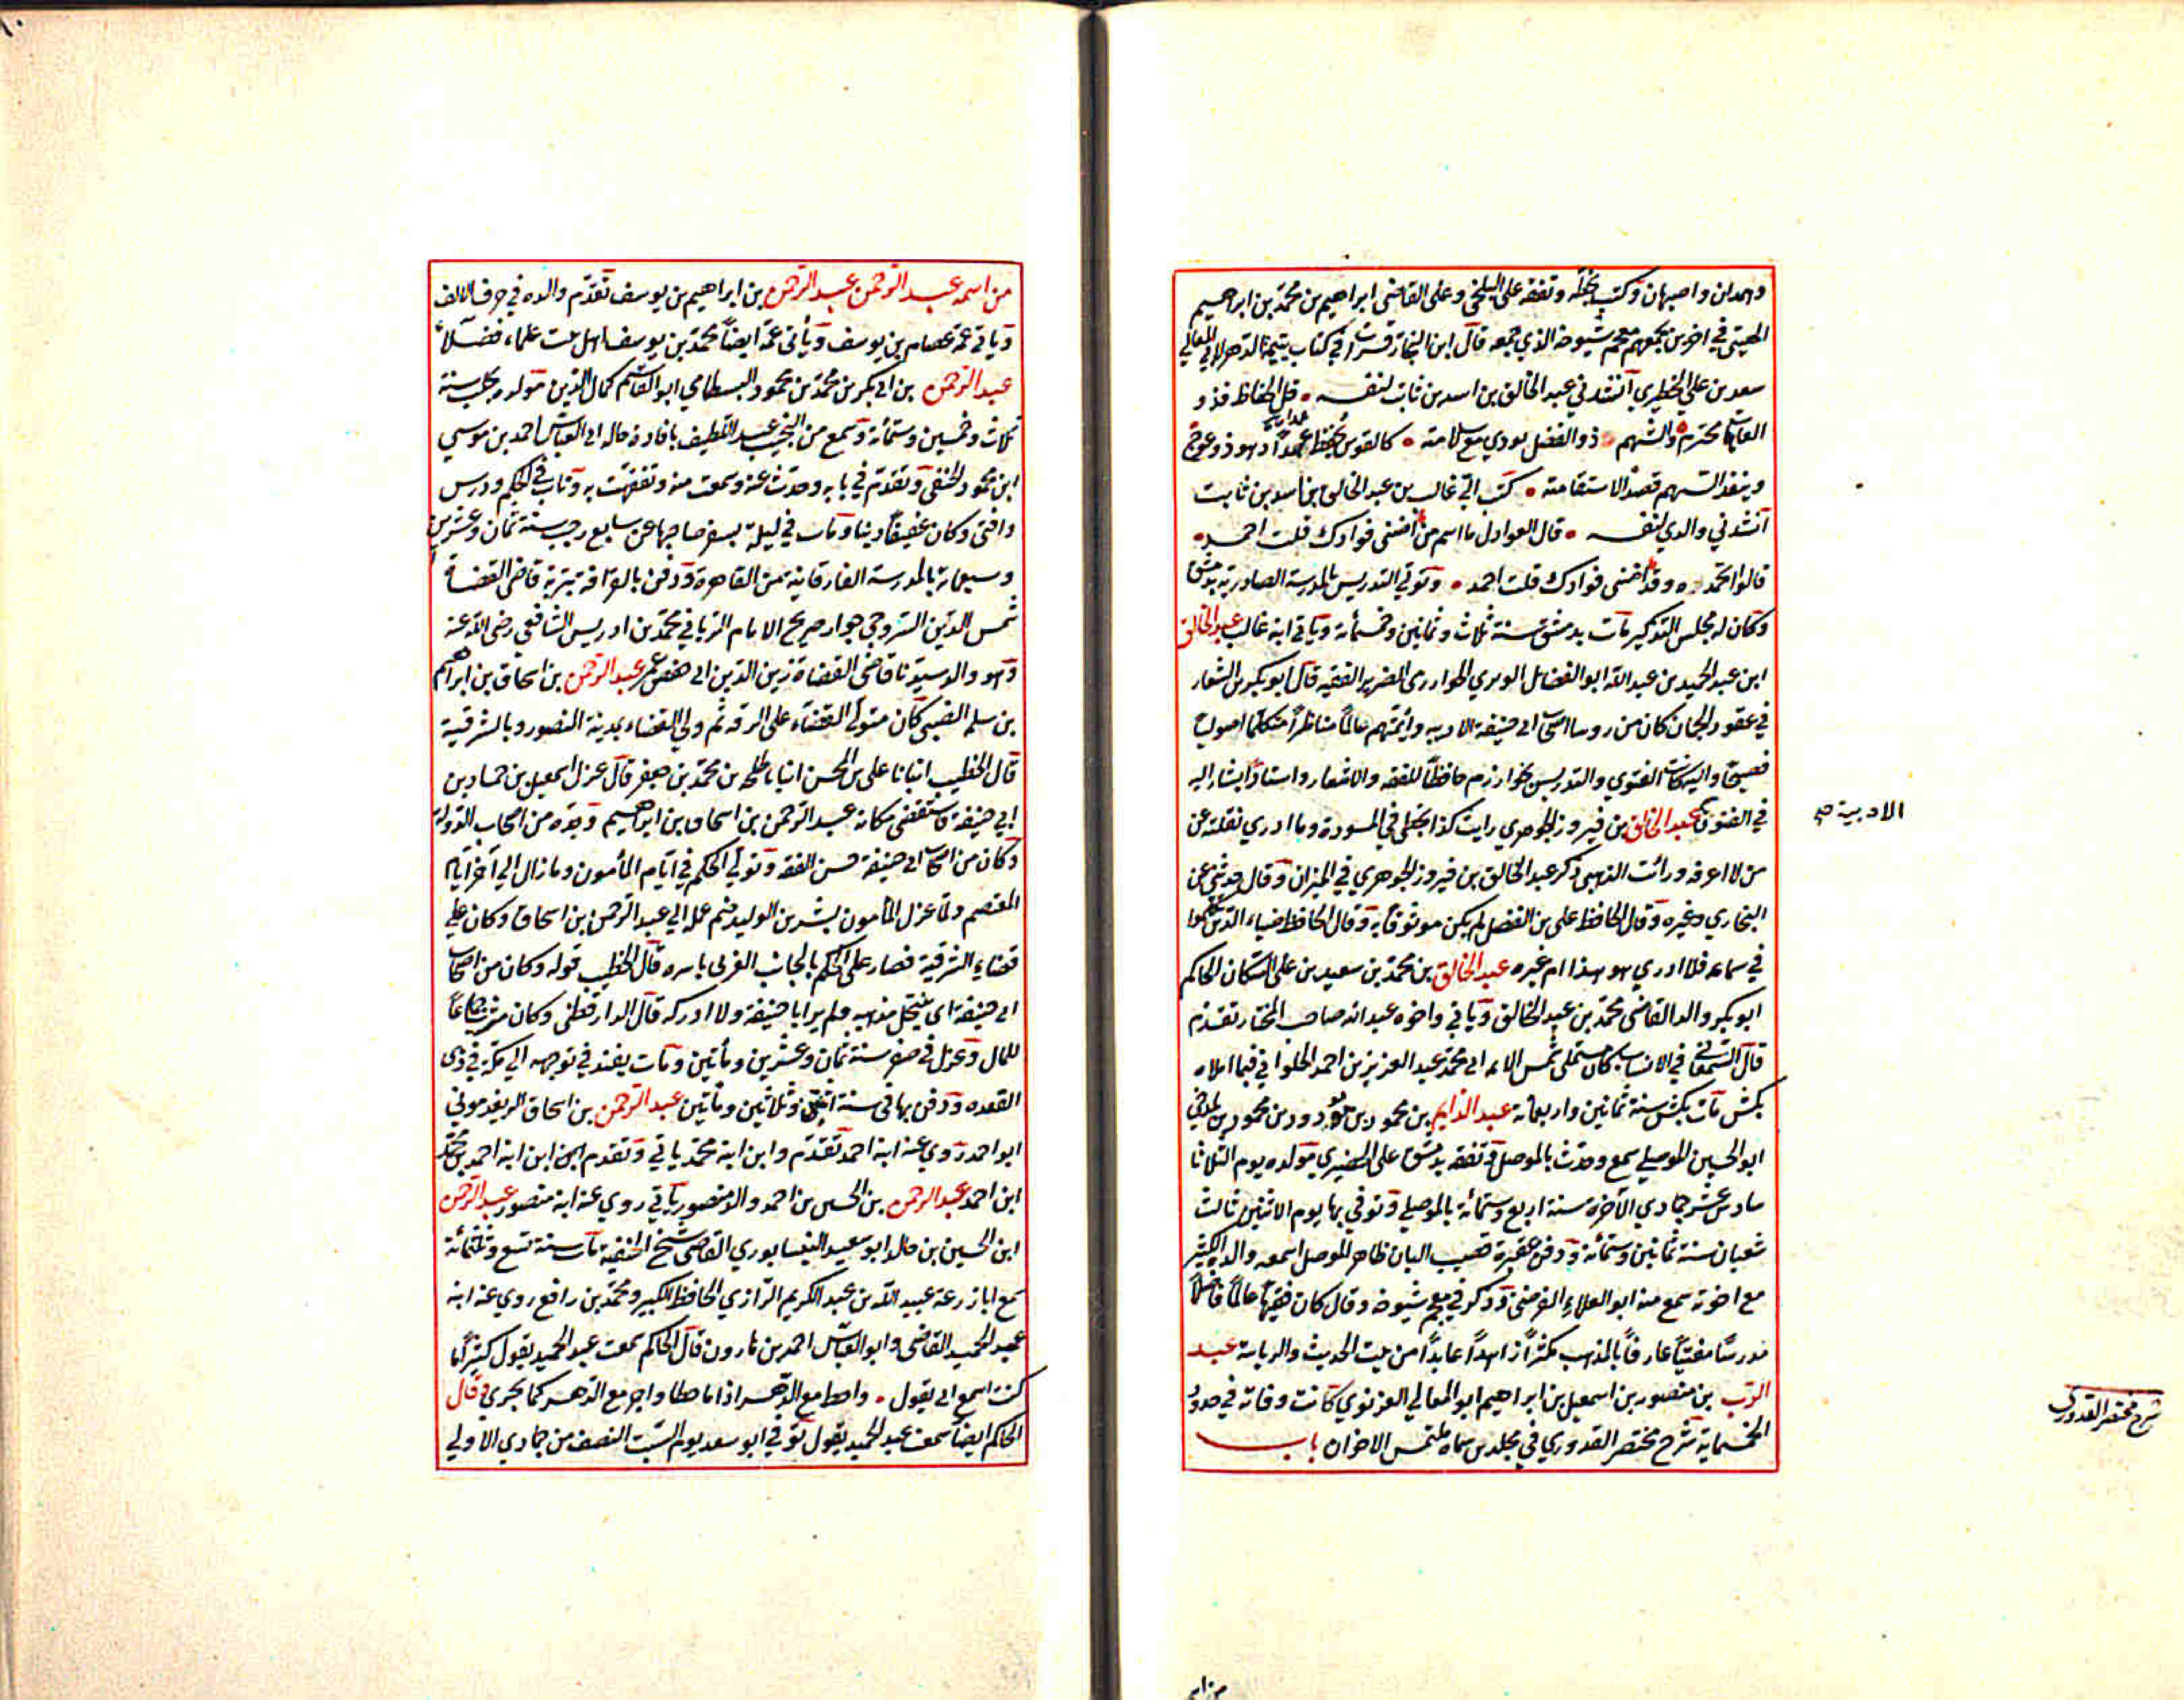 وهمدان واصبهان وكتب بخطه وتفقه على البلخي وعلى القاضي ابراهيم بن محمد بن ابراهيم
الهيتي في اخرين يجمعهم معجم شيوخه الذي جمعه قال ابن النجار قرات في كتاب يتيمة الدهر لابي المعالي
سعد بن علي الخطيري انشدني عبد الخالق بن اسد بن ثابت لنفسه قل الحفاظ فذو
العاهات محترم والشهم ذو الفضل يودي مع سلامته كالقوس يحفظ عمدا وهو ذو عوج
وينفذ السهم قصد الاستقامته كتب الي غالب بن عبد الخالق بن اسد بن ثابت
انشدني والدي لنفسه قال العواذل ما اسم من اضنى فوادك قلت احمد
قالوا اتحمده وقد اضنى فوادك قلت احمد وتولى التدريس بالمدرسة الصادرية بدمشق
وكان له مجلس التذكير مات بدمشق سنة ثلاث وثمانين وخمسمأة وياتي ابنه غالب عبد الخالق
ابن عبد الحميد بن عبد الله ابو الفضائل الوبري الخوارزمي الضرير الفقيه قال ابو بكر بن الشعار
في عقود الجمان كان من روسا اصحاب ابي حنيفة الادبيه وائمتهم عالما مناظرا متكلما اصوليا
فصيحا واليه كانت الفتوى والتدريس بخوارزم حافظا للفقه والاشعار واستاذا يشار اليه
في الفنون عبد الخالق بن فيروز الجوهري رايت كذا بخطي في المسودة وما ادري نقلته عن
الادبية صح
من لا اعرفه ورائت الذهبي ذكر عبد الخالق بن فيروز الجوهري في الميزان وقال حدثني عن
البخاري وغيره وقال الحافظ علي بن الفضل لم يكن موثوقا به وقال الحافظ ضياء الدين تكلموا
في سماعه فلا ادري هو هذا ام غيره عبد الخالق بن محمد بن سعيد بن علي السكان الحاكم
ابو بكر والد القاضي محمد بن عبد الخالق وياتي واخوه عبد الله صاحب المختار تقدم
قال السمعاني في الانساب كان مستملي شمس الائمه ابي محمد عبد العزيز بن احمد الحلواني فيما املاه
بكش مات بكش سنة ثمانين واربعمائة عبد الدايم بن محمود بن مودود بن محمود بن بلدجي
ابو الحسين الموصلي سمع وحدث بالموصل وتفقه بدمشق على الحصيري مولده يوم الثلاثا
سادس عشر جمادي الاخرة سنة اربع وستمأة بالموصل وتوفي بها يوم الاثنين ثالث
شعبان سنة ثمانين وستمأة ودفن بمقبرة قضيب البان ظاهر الموصل اسمعه والده الكثير
مع اخوته سمع منه ابو العلاء الفرضي وذكره في معجم شيوخه وقال كان فقيها عالما فاضلا
مدرسا مفتيا عارفا بالمذهب مكثرا زاهدا عابدا من بيت الحديث والرياسة عبد
الرب بن منصور بن اسمعيل بن ابراهيم ابو المعالي الغزنوي كانت وفاته في حدود
الخمسماية شرح مختصر القدوري في مجلدين سماه ملتمس الاخوان باب
شرح مختصر القدوري
من اسمه عبد الرحمن عبد الرحمن بن ابراهيم بن يوسف تقدم والده في حرف الالف
وياتي عمه عصام بن يوسف وياتي عمه ايضا محمد بن يوسف اهل بيت علماء فضلاء
عبد الرحمن بن ابي بكر بن محمد بن محمود البسطامي ابو القاسم كمال الدين مولده بحلب سنة
ثلاث وخمسين وستمأة وسمع من النجيب عبد اللطيف بافادة خاله ابي العباس احمد بن موسي
ابن محمود الحنفي وتقدم في بابه وحدث عنه وسمعت منه وتفقهت به وناب في الحكم ودرس
وافتى وكان عفيفا دينا ومات في ليلة يسفر صباحها عن سابع رجب سنة ثمان وعشرين
وسبعماية بالمدرسة الفارقانية من القاهرة ودفن بالقرافة بتربة قاضى القضاة
شمس الدين السروجي جوار ضريح الامام الرباني محمد بن ادريس الشافعي رضي الله عنه
وهو والد سيدنا قاضى القضاة زين الدين ابي حفص عمر عبد الرحمن بن اسحاق بن ابراهيم
بن سلمه الضبي كان متولى القضاء على الرقه ثم ولي القضاء بمدينة المنصور وبالشرقية
قال الخطيب انبانا علي بن المحسن انبانا طلحه بن محمد بن جعفر قال عزل اسمعيل بن حماد بن
ابي حنيفة واستقضى مكانه عبد الرحمن بن اسحاق بن ابراهيم وجده من اصحاب الدولة
وكان من اصحاب ابي حنيفة حسن الفقه وتولي الحكم في ايام المأمون وما زال الي آخر ايام
المعتصم ولما عزل المأمون بشر بن الوليد ضم عمله الي عبد الرحمن بن اسحاق وكان علي
قضاء الشرقية فصار على الحكم بالجانب الغربي باسره قال الخطيب قوله وكان من اصحاب
ابي حنيفة اي ينتحل مذهبه ولم ير ابا حنيفة ولا ادركه قال الدارقطني وكان مترفا جماعا
للمال وعزل في صفر سنة ثمان وعشرين ومأتين ومات بفيد في توجهه الي مكة في ذي
القعده ودفن بها في سنة اثنتين وثلاثين ومأتين عبد الرحمن بن اسحاق الريغدموني
ابو احمد روي عنه ابنه احمد تقدم وابن ابنه محمد ياتي وتقدم ابن ابن ابنه احمد بن محمد
ابن احمد عبد الرحمن بن الحسن بن احمد والد منصور ياتي روي عنه ابنه منصور عبد الرحمن
ابن الحسين بن خالد ابو سعيد النيسابوري القاضي شيخ الحنفية مات سنة تسع وثلثمأئة
سمع ابا زرعة عبيد الله بن عبد الكريم الرازي الحافظ الكبير ومحمد بن رافع روي عنه ابنه
عبد الحميد القاضي وابو العباس احمد بن هارون قال الحاكم سمعت عبد الحميد يقول كثيرا ما
كنت اسمع ابي يقول واخط مع الدهر اذا ما خطا واجر مع الدهر كما يجري قال
الحاكم ايضا سمعت عبد الحميد يقول توفي ابو سعد يوم السبت النصف من جمادي الاولي